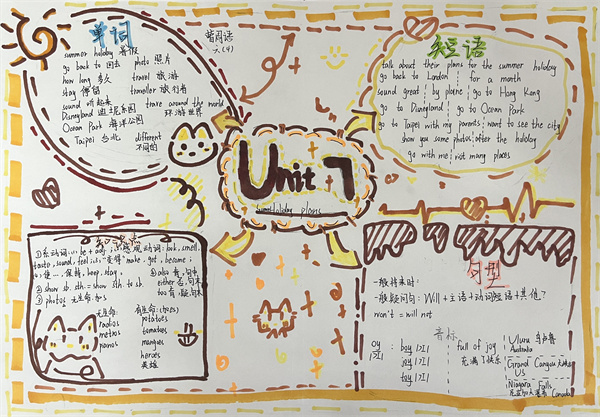 单词
summer holiday 暑假
go back to 回去 photo 照片
how long 多久 travel 旅游
stay 停留 traveller 旅行者
sound 听起来 travel around the world
Disneyland 迪士尼乐园 环游世界
Ocean Park 海洋公园
Taipei 台北 different
不同的
六(4)
短语
talk about their plans for the summer holiday
go back to London for a month
sound great by plane go to Hong Kong
go to Disneyland go to Ocean Park
go to Taipei with my parents want to see the city
show you some photos after the holiday
go with me not many places
Unit 7
summer holiday plans
知识点
taste, sound, feel
② show sb. sth. = show sth. to sb.
③ photos
either 否, 句末
too 肯, 句末
无生命 有生命(+es)
radios potatoes
metros tomatoes
pianos mangoes
heroes
英雄
句型
一般将来时
一般疑问句: Will + 主语 + 动词短语 + 其他?
won't = will not
音标
oy : boy /ɔɪ/ full of joy
/ɔɪ/ joy /ɔɪ/ 充满了快乐
toy /ɔɪ/
Uluru 乌卢鲁
Australia
Grand Canyon 大峡谷
US
Niagara Falls
尼亚加拉瀑布 Canada